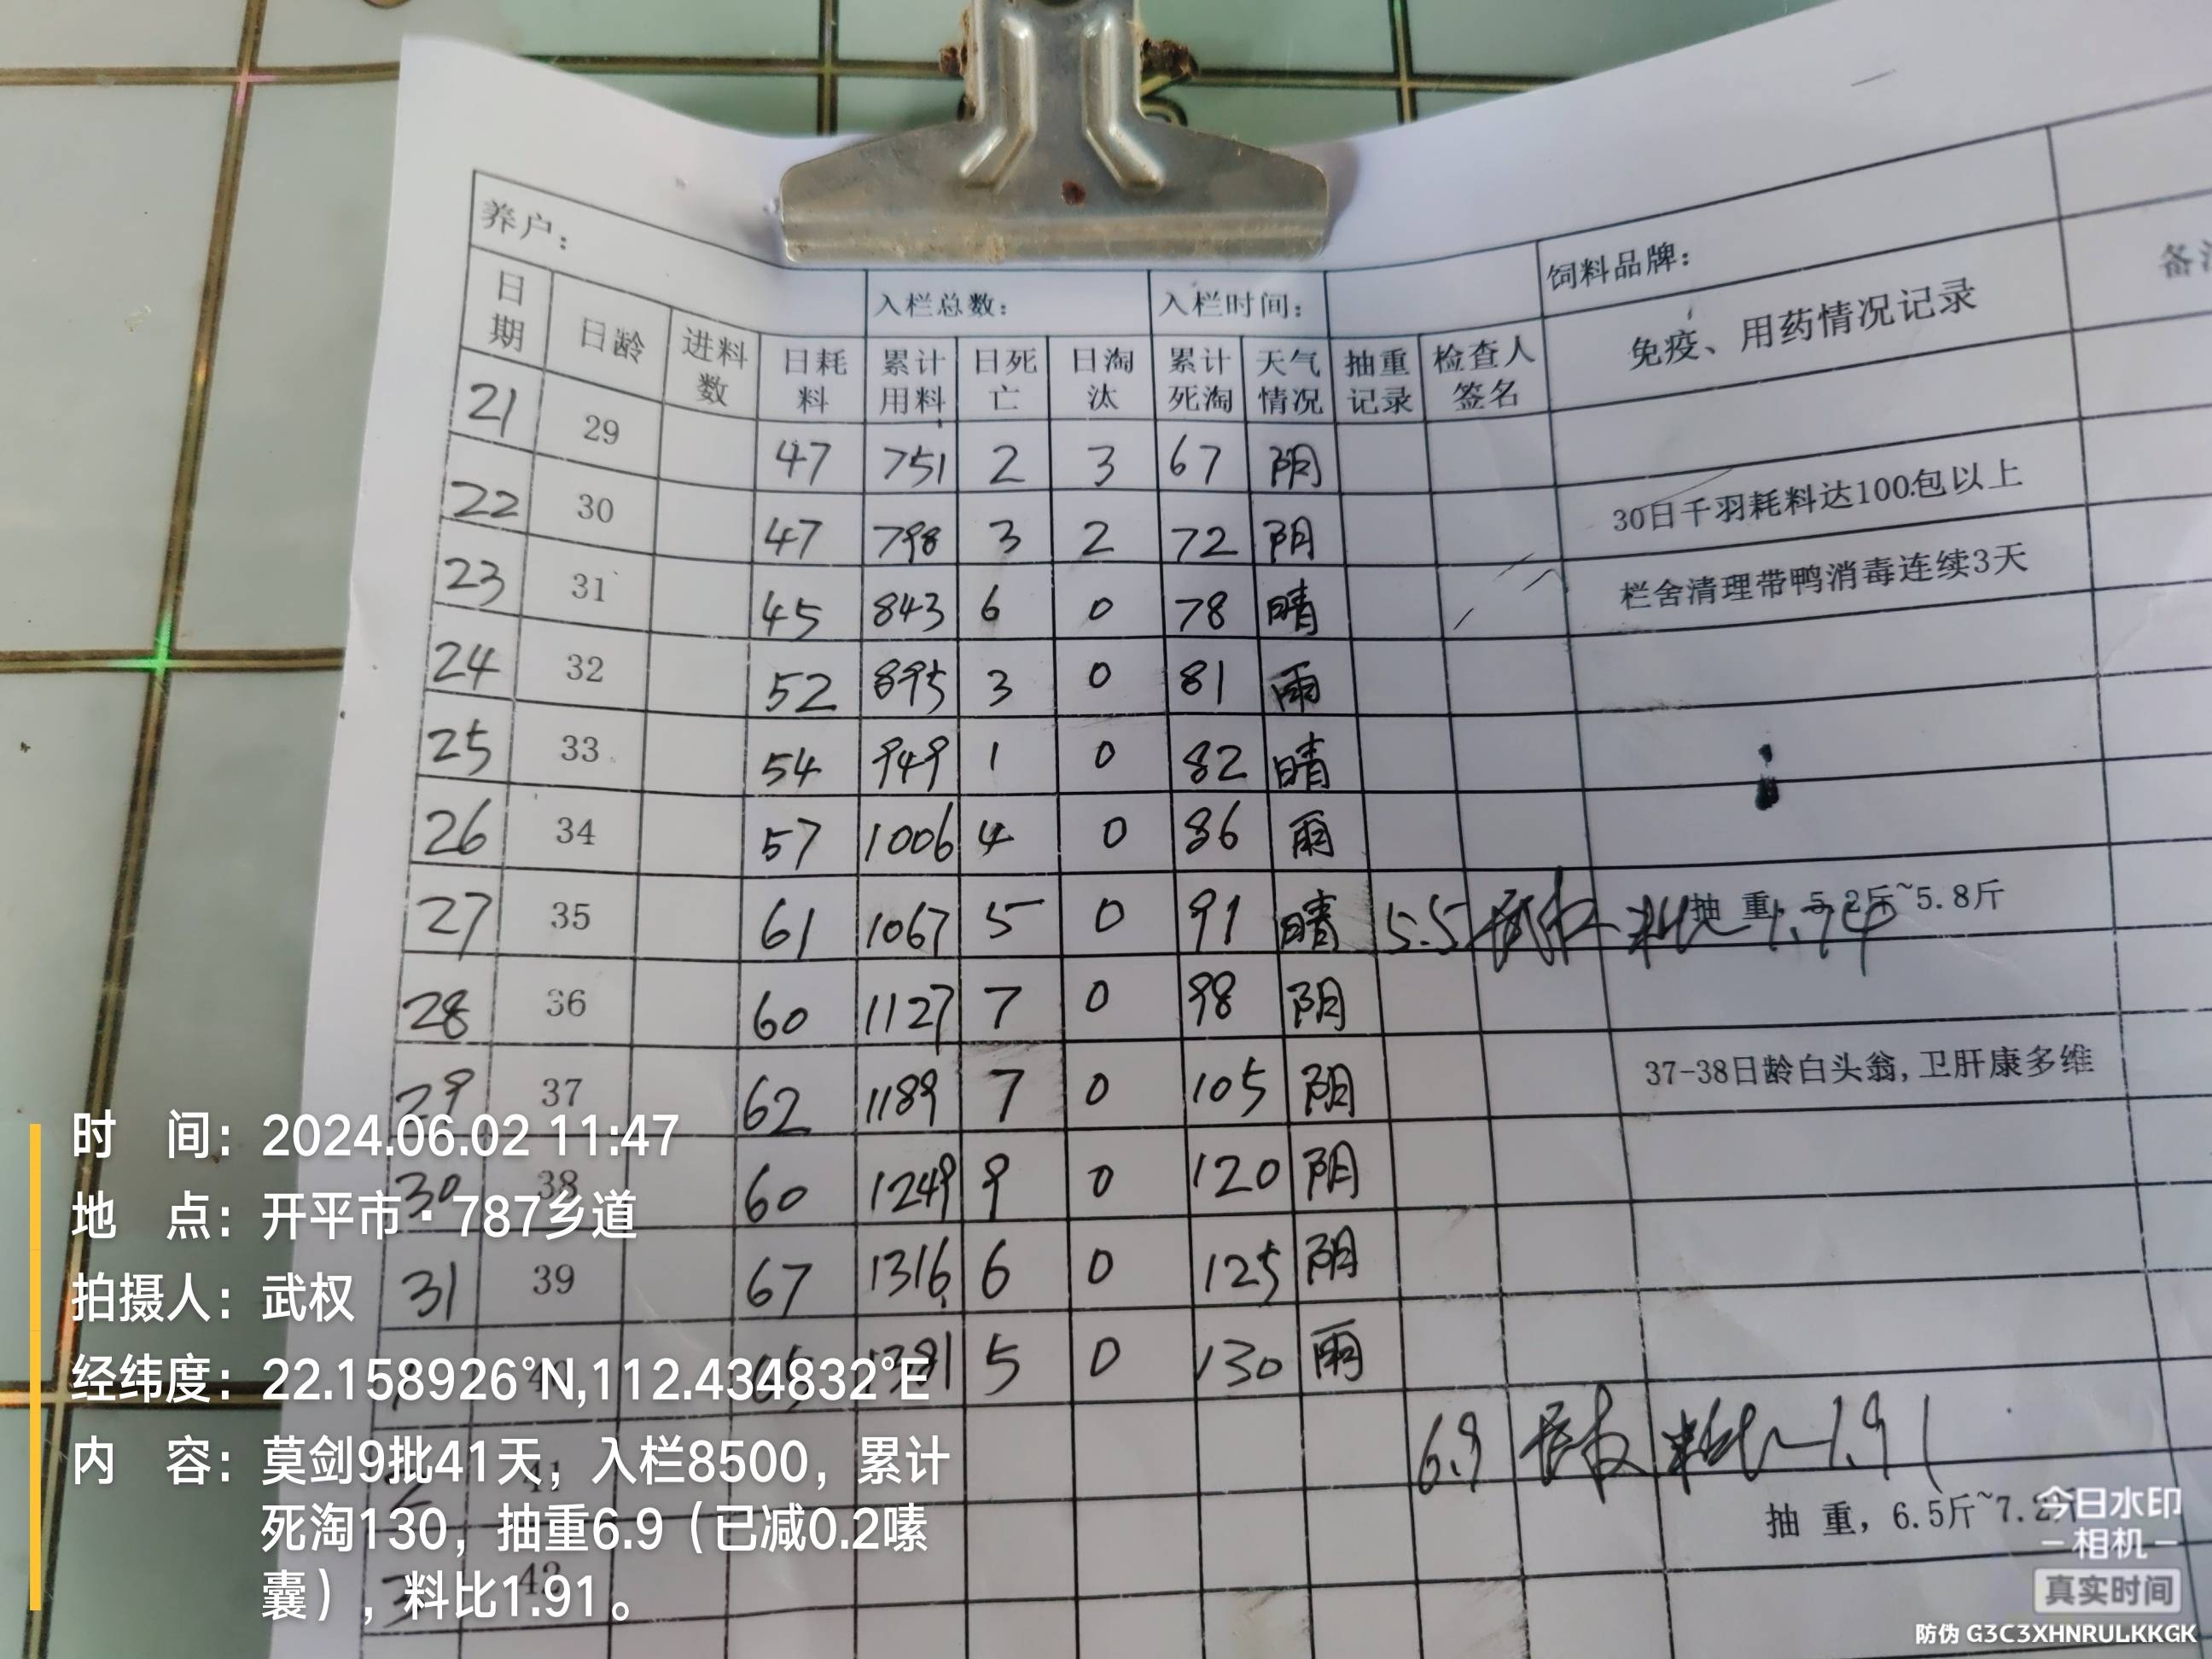 养户：
饲料品牌：
入栏总数： 入栏时间：
日期 日龄 进料数 日耗料 累计用料 日死亡 日淘汰 累计死淘 天气情况 抽重记录 检查人签名 免疫、用药情况记录
21 29 47 751 2 3 67 阴
22 30 47 798 3 2 72 阴 30日千羽耗料达100包以上
23 31 45 843 6 0 78 晴 栏舍清理带鸭消毒连续3天
24 32 52 895 3 0 81 雨
25 33 54 949 1 0 82 晴
26 34 57 1006 4 0 86 雨
27 35 61 1067 5 0 91 晴 5.5 武权 料比1.74 抽 重，5.2斤~5.8斤
28 36 60 1127 7 0 98 阴
29 37 62 1189 7 0 105 阴 37-38日龄白头翁,卫肝康多维
30 38 60 1249 9 0 120 阴
31 39 67 1316 6 0 125 阴
1 40 65 1381 5 0 130 雨
2 41 6.9 武权 料比1.91
抽 重，6.5斤~7.2斤
3
时 间：2024.06.02 11:47
地 点：开平市·787乡道
拍摄人：武权
经纬度：22.158926°N,112.434832°E
内 容：莫剑9批41天，入栏8500，累计
死淘130，抽重6.9（已减0.2嗉
囊），料比1.91。
今日水印
相机
真实时间
防伪 G3C3XHNRULKKGK